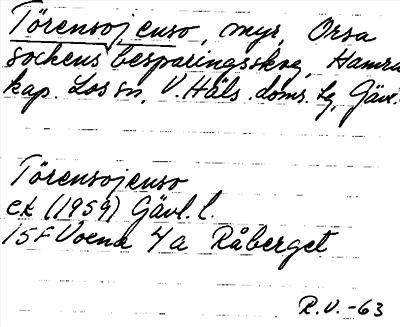 Törensojenso, myr, Orsa
sockens besparingsskog, Hamra
kap. Los sn, V. Häls. doms. tg, Gävl.
Törensojenso
ek (1959) Gävl. l.
15F Voxna 4a Råberget
R.V.-63